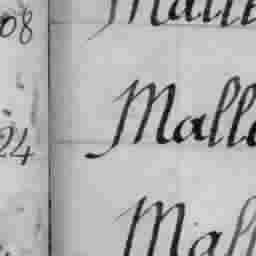 08 Malle
24 Malle
Mall